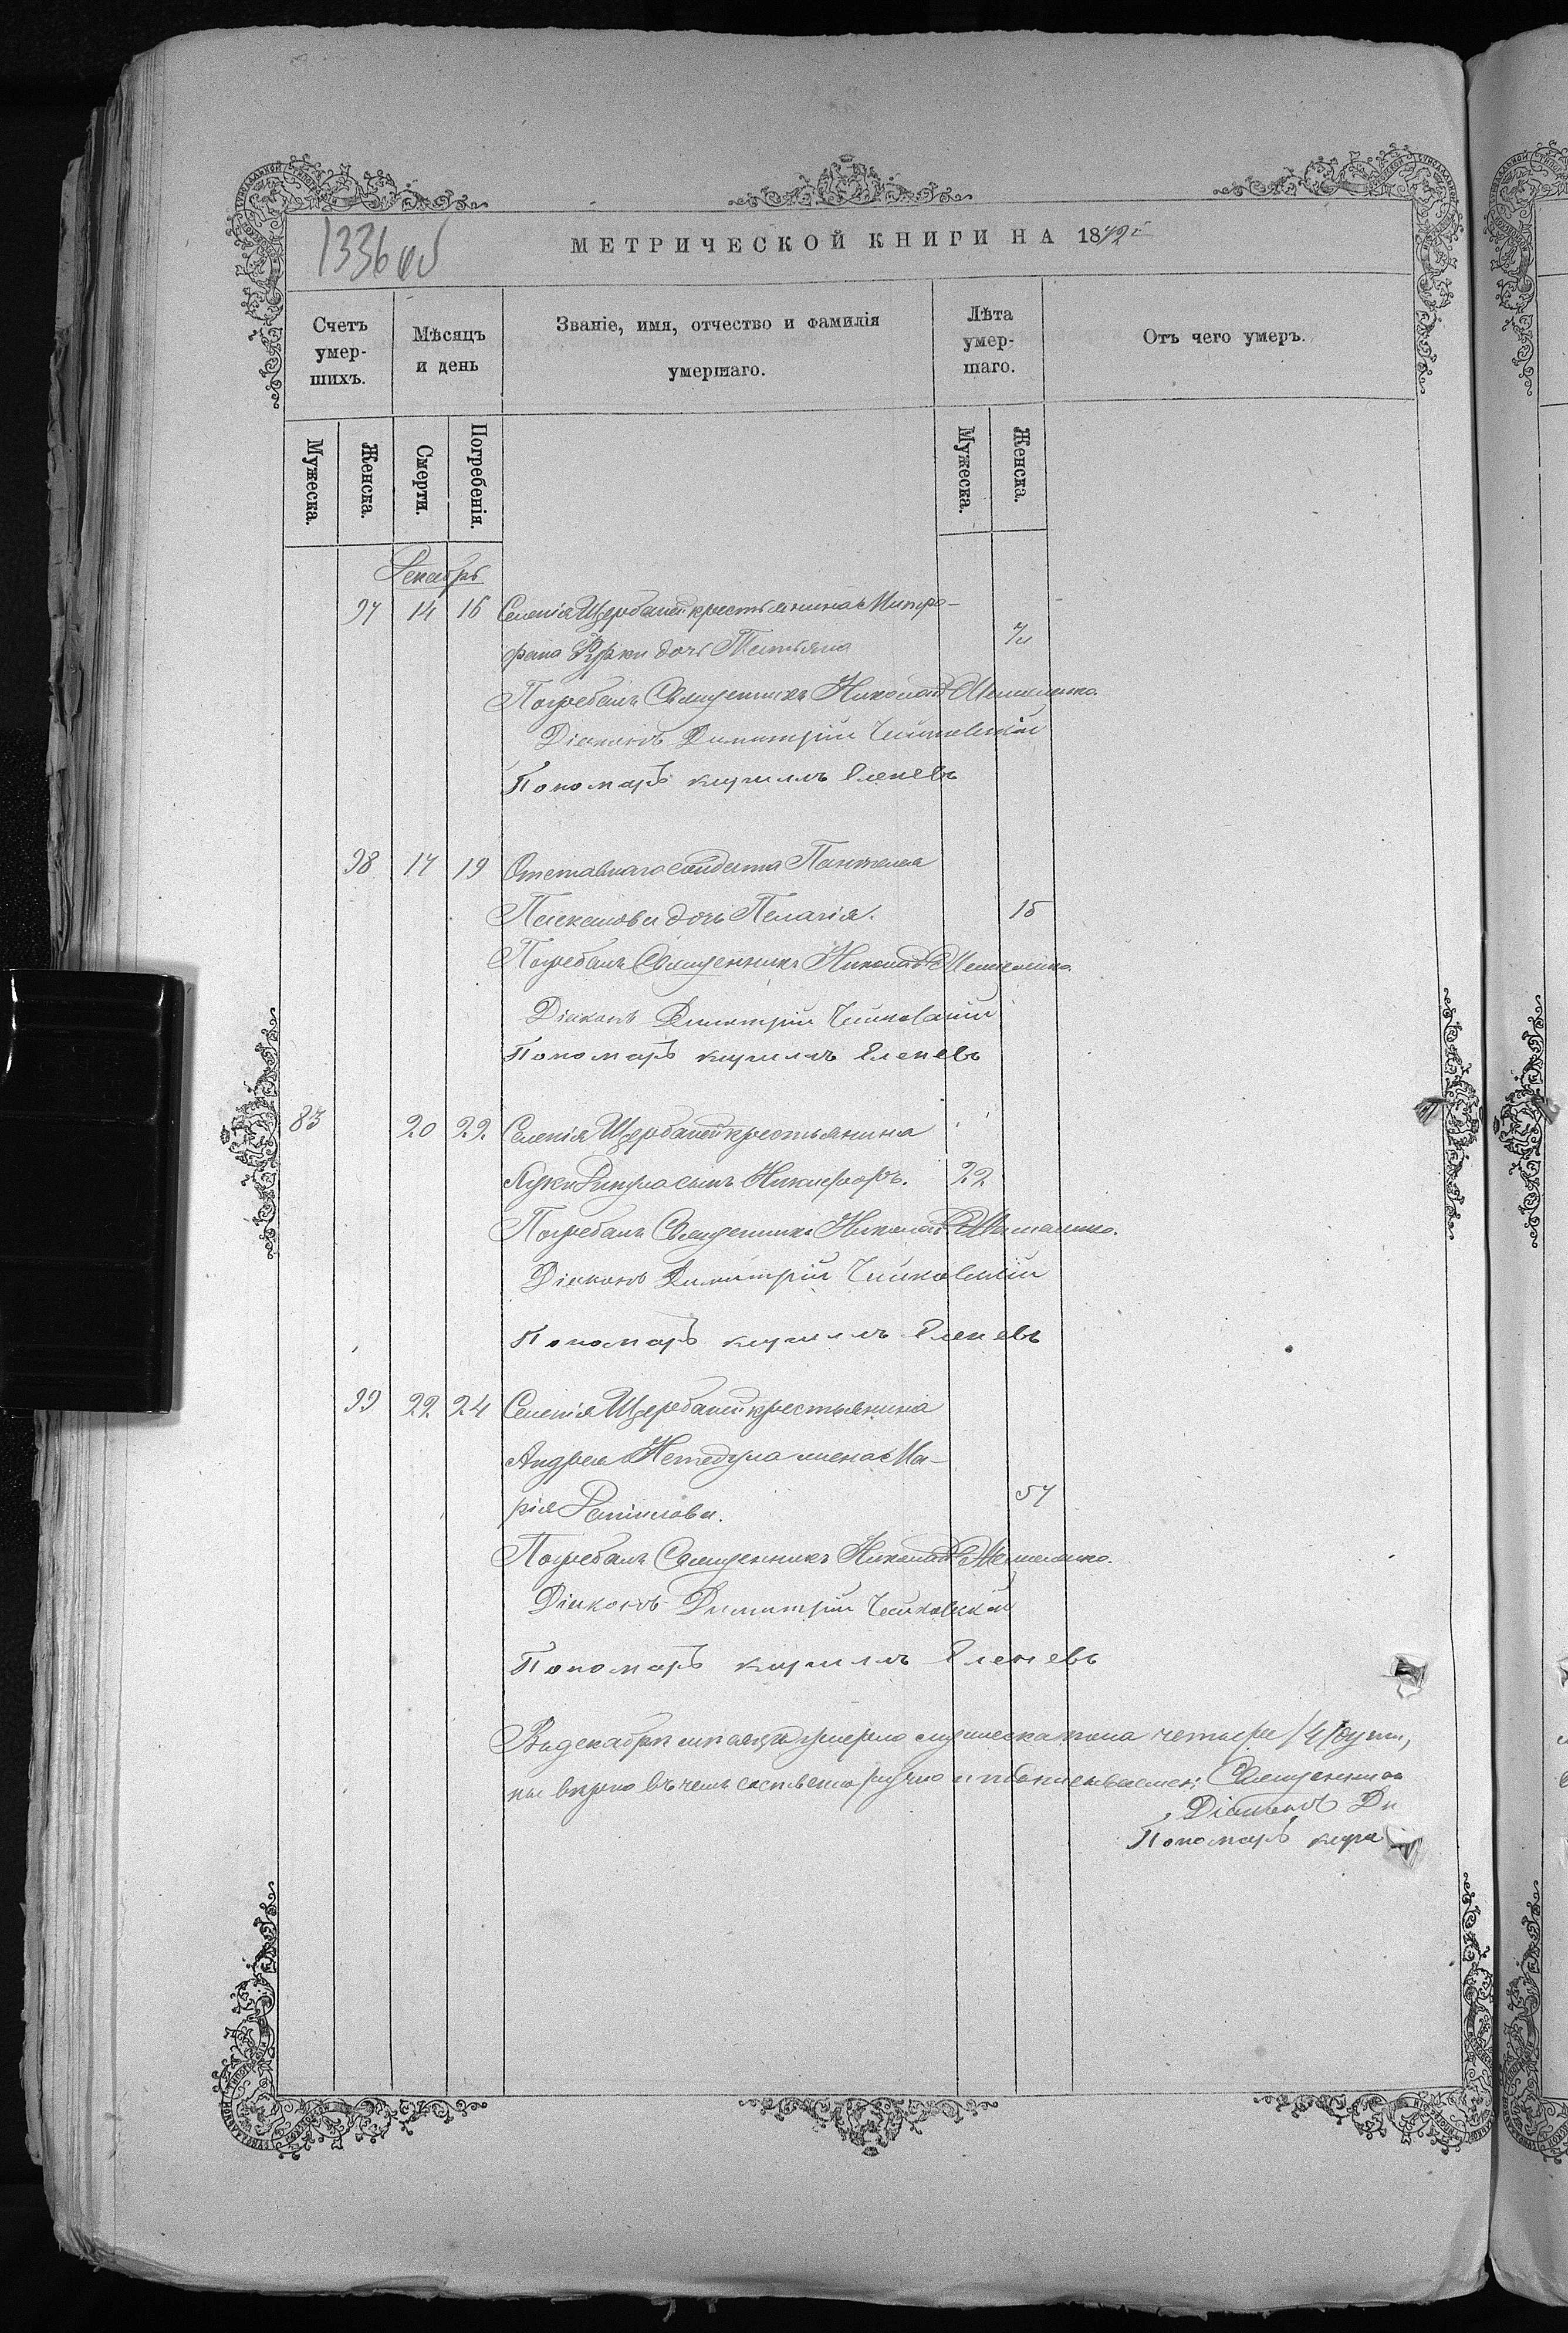 1336 об
МЕТРИЧЕСКОЙ КНИГИ НА 1872 г
Счетъ умер-шихъ.
Мѣсяцъ и день
Званіе, имя, отчество и фамилія умершаго.
Лѣта умер-шаго.
Отъ чего умеръ.
Мужеска.
Женска.
Смерти.
Погребенія.
Мужеска.
Женска.
Декабрь
97 14 16 Селенія Щербаней крестьянина Митро-
фана дочь Татьяна
Погребалъ Священникъ Николай
Діаконъ Димитрій Чайковскій
Пономарь Кириллъ Еленевъ
98 17 19 Отставнаго солдата Пантелея
дочь Пелагія. 15
Погребалъ Священникъ Николай
Діаконъ Димитрій Чайковскій
Пономарь Кириллъ Еленевъ
83 20 22 Селенія Щербаней крестьянина
Луки сынъ Никифоръ. 22
Погребалъ Священникъ Николай
Діаконъ Димитрій Чайковскій
Пономарь Кириллъ Еленевъ
99 22 24 Селенія Щербаней крестьянина
Андрея жена Ма-
рія Данілова. 57
Погребалъ Священникъ Николай
Діаконъ Димитрій Чайковскій
Пономарь Кириллъ Еленевъ
Въ декабрѣ мѣсяцѣ умерло мужеска пола четыре /4/ души,
Священникъ
Діаконъ Ди
Пономарь Кири